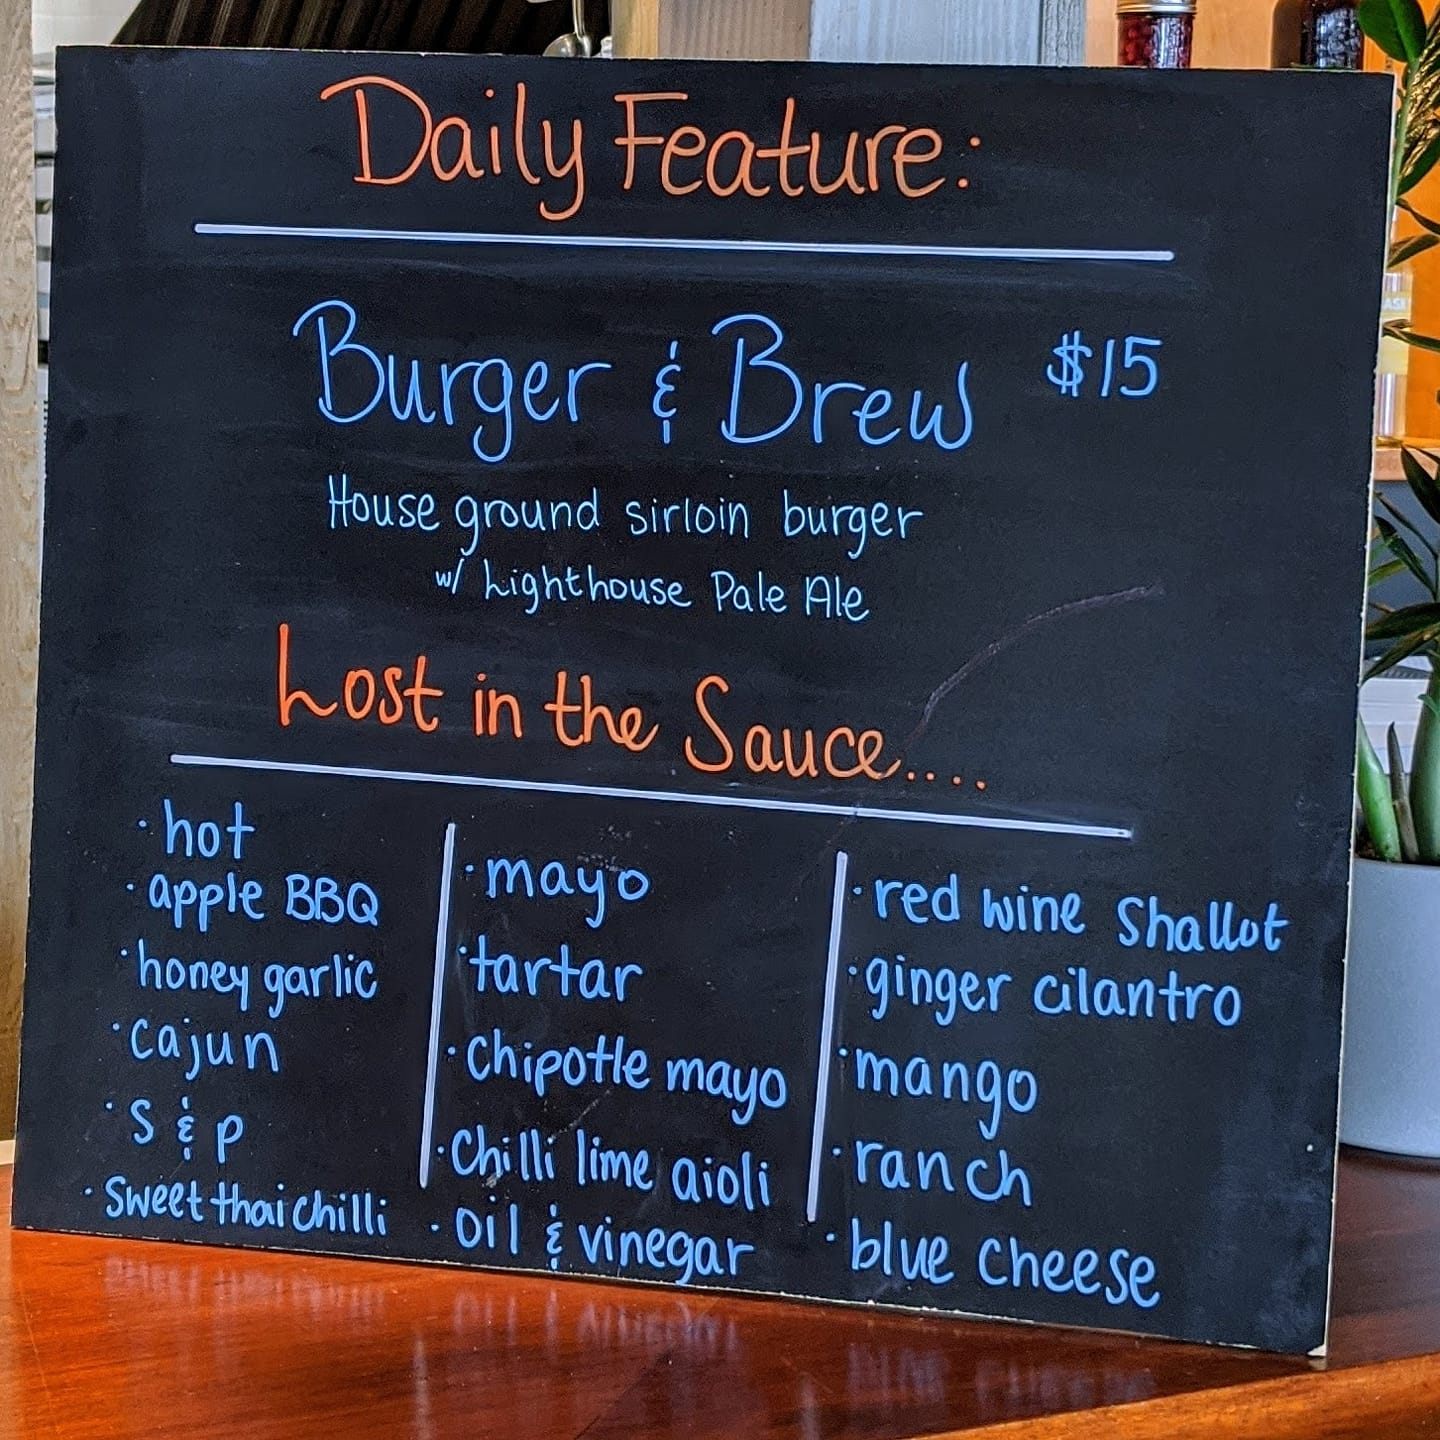 Daily Feature:
Burger & Brew $15
House ground sirloin burger
w/ Lighthouse Pale Ale
Lost in the Sauce....
· hot
· apple BBQ
· honey garlic
· cajun
· S & p
· Sweet thai chilli
· mayo
· tartar
· Chipotle mayo
· Chilli lime aioli
· oil & vinegar
· red wine Shallot
· ginger cilantro
· mango
· ranch
· blue cheese